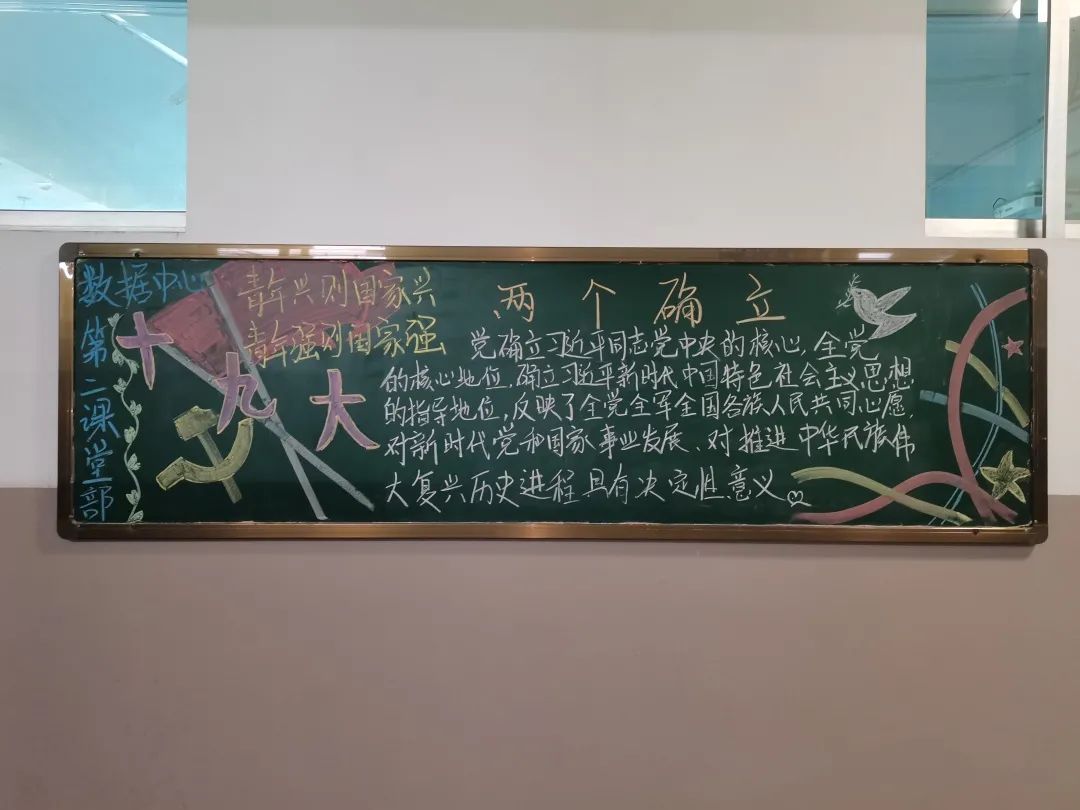 数据中心
第二课堂部
青年兴则国家兴
青年强则国家强
十九大
两个确立
党确立习近平同志党中央的核心，全党
的核心地位，确立习近平新时代中国特色社会主义思想
的指导地位，反映了全党全军全国各族人民共同心愿，
对新时代党和国家事业发展、对推进中华民族伟
大复兴历史进程具有决定性意义。